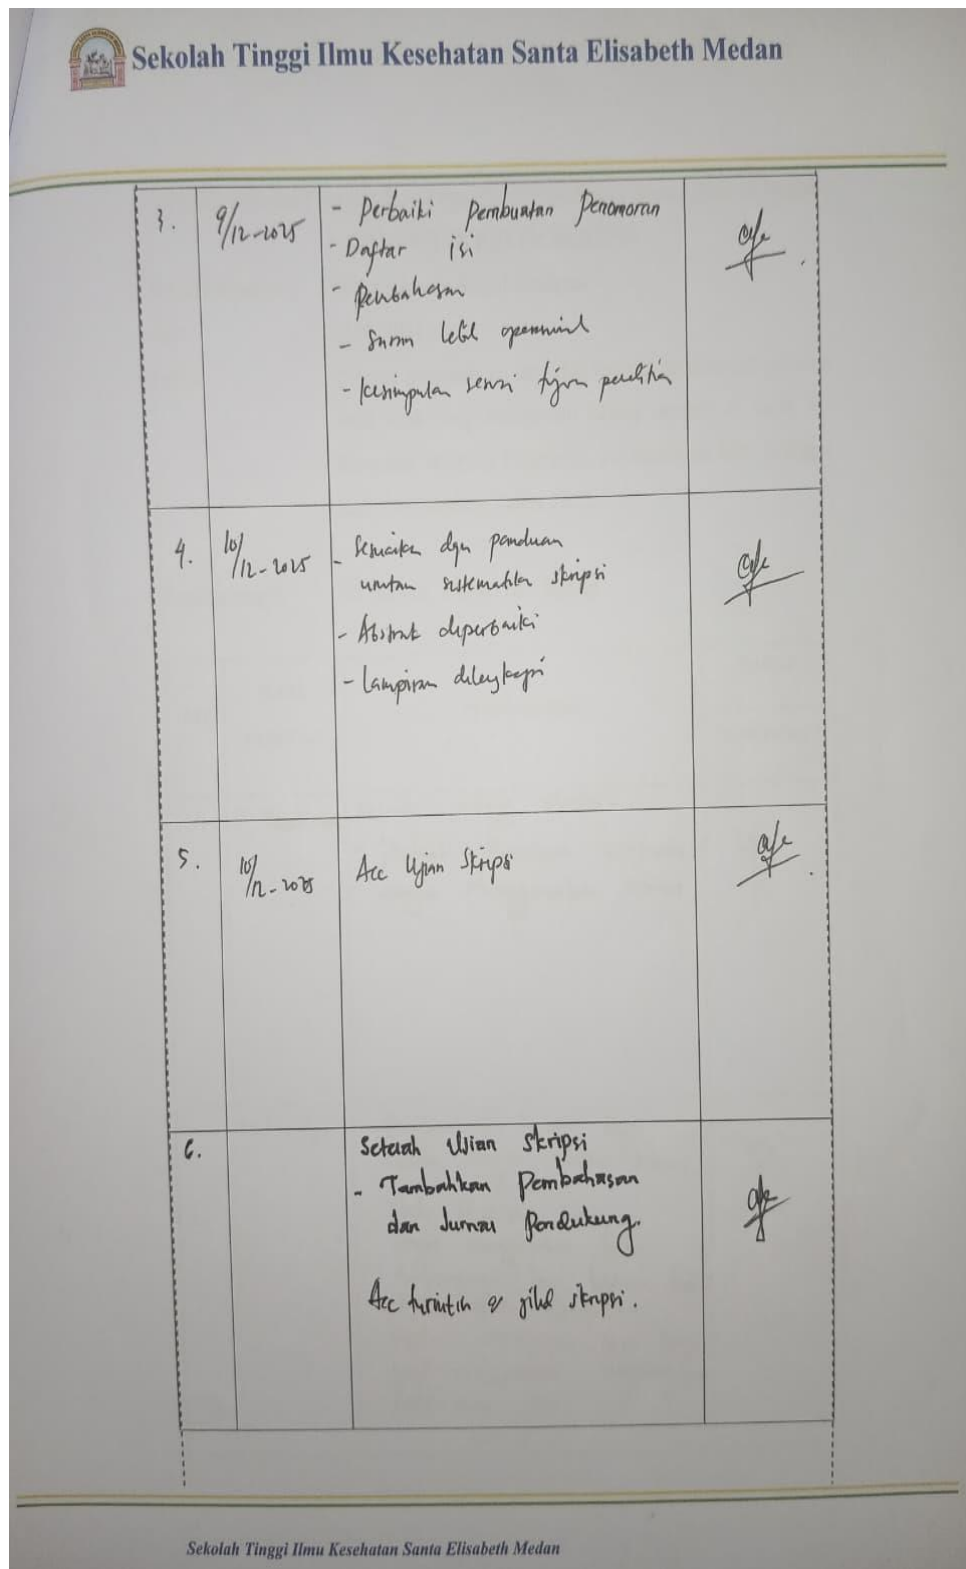 Sekolah Tinggi Ilmu Kesehatan Santa Elisabeth Medan
3.
9/12-2025
- Perbaiki Pembuatan Penomoran
- Daftar isi
- Pembahasan
- Saran lebih
- Kesimpulan sesuai tujuan penelitian
4.
10/12-2025
- Sesuaikan dgn panduan
urutan sistematika skripsi
- Abstrak diperbaiki
- Lampiran dilengkapi
5.
10/12-2025
Acc Ujian Skripsi
6.
Setelah Ujian Skripsi
- Tambahkan Pembahasan
dan Jurnal Pendukung.
Acc jilid skripsi.
Sekolah Tinggi Ilmu Kesehatan Santa Elisabeth Medan